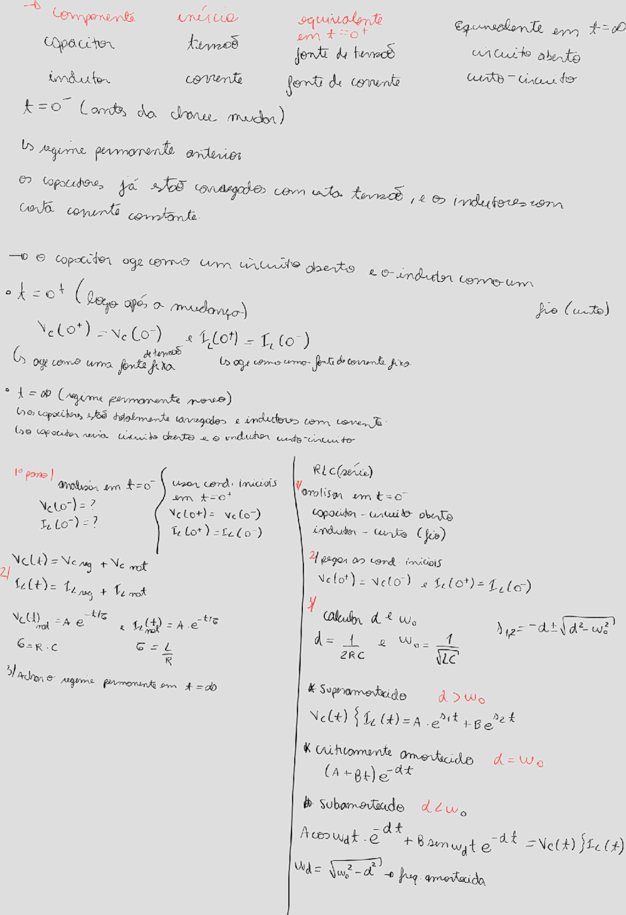 → componente inércia equivalente em t=0⁺ Equivalente em t=∞
capacitor tensão fonte de tensão circuito aberto
indutor corrente fonte de corrente curto-circuito
t=0⁻ (antes da chave mudar)
↳ regime permanente anterior
os capacitores já estão carregados com certa tensão, e os indutores com
certa corrente constante.
→ o capacitor age como um circuito aberto e o indutor como um
fio (curto)
• t=0⁺ (logo após a mudança)
Vc(0⁺)=Vc(0⁻) e IL(0⁺)=IL(0⁻)
↳ age como uma fonte de tensão fixa ↳ age como uma fonte de corrente fixa
• t=∞ (regime permanente novo)
↳ os capacitores estão totalmente carregados e indutores com corrente
↳ o capacitor seria circuito aberto e o indutor curto-circuito
1º passo/ analisar em t=0⁻
Vc(0⁻)=?
IL(0⁻)=?
usar cond. iniciais
em t=0⁺
Vc(0+)=Vc(0⁻)
IL(0+)=IL(0⁻)
2/ Vc(t)=Vc reg + Vc nat
IL(t)=IL reg + IL nat
Vc(t) nat = A e^(-t/σ) e IL(t) nat = A·e^(-t/σ)
σ=R·C σ=L/R
3/ Achar o regime permanente em t=∞
RLC (série)
1/ analisar em t=0⁻
capacitor - circuito aberto
indutor - curto (fio)
2/ pegar as cond. iniciais
Vc(0⁺)=Vc(0⁻) e IL(0⁺)=IL(0⁻)
3/ calcular d e ω₀
d = 1/2RC e ω₀ = 1/√LC s1,2 = -d ± √(d²-ω₀²)
* superamortecido d>ω₀
Vc(t) { IL(t) = A·e^(s₁t) + B e^(s₂t)
* criticamente amortecido d=ω₀
(A+Bt) e^(-dt)
* subamortecido d<ω₀
A cos ωd t·e^(-dt) + B sen ωd t e^(-dt) = Vc(t) } IL(t)
ωd = √(ω₀²-d²) → freq. amortecida